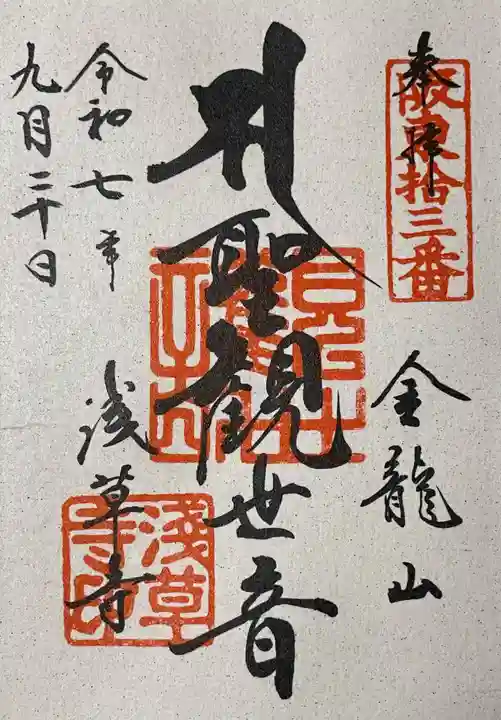 奉拝
阪東拾三番
金龍山
聖観世音
浅草寺
淺草寺印
令和七年
九月二十日